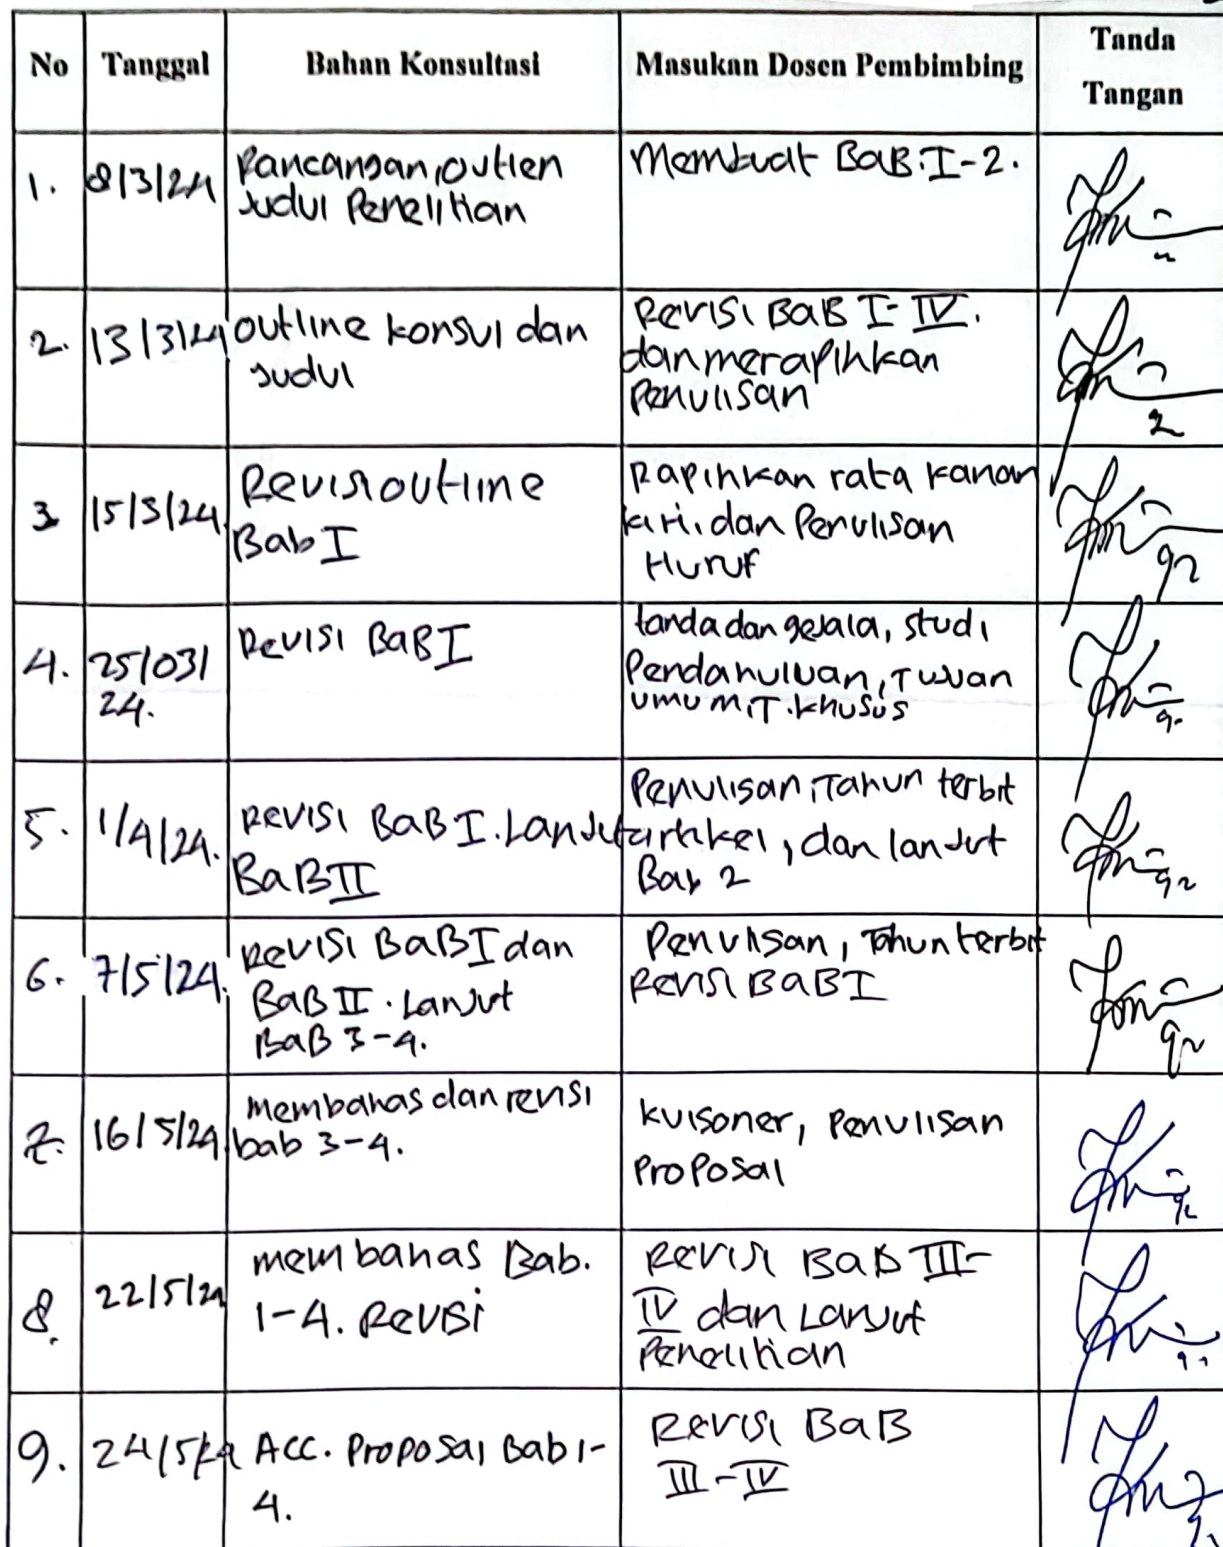 No Tanggal Bahan Konsultasi Masukan Dosen Pembimbing Tanda
Tangan
1. 8/3/24 Rancangan, Outlen
Judul Penelitian
Membuat BaB. I-2.
2. 13/3/24 Outline konsul dan
Judul
Revisi BaB I-IV.
dan merapihkan
Penulisan
3 15/3/24 Revisi outline
Bab I
Rapihkan rata kanan
kiri, dan Penulisan
Huruf
4. 25/03/
24.
Revisi BaB I
tanda dan gejala, studi
Pendahuluan, Tujuan
umum, T. khusus
5. 1/4/24. Revisi BaB I. Lanjut
BaB II
Penulisan, Tahun terbit
artikel, dan lanjut
Bab 2
6. 7/5/24. Revisi BaB I dan
BaB II. Lanjut
BaB 3-4.
Penulisan, Tahun terbit
Revisi BaB I
7. 16/5/24 membahas dan revisi
bab 3-4.
kuisoner, Penulisan
Proposal
8. 22/5/24 membahas Bab.
1-4. Revisi
Revisi BaB III-
IV dan Lanjut
Penelitian
9. 24/5/24 Acc. Proposal Bab 1-
4.
Revisi BaB
III-IV